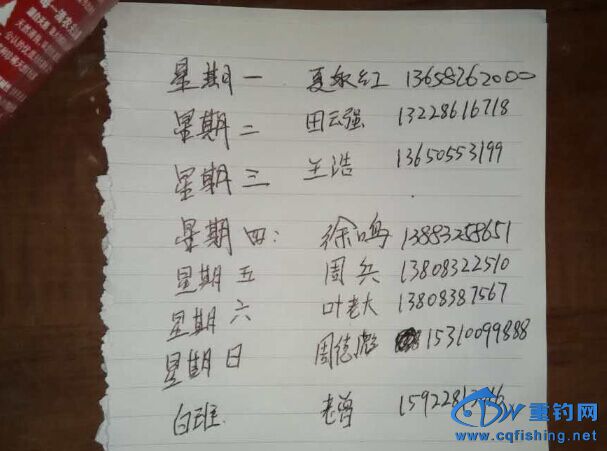 星期一 夏永红 13658262000
星期二 田云强 13228616718
星期三 王浩 13650553199
星期四: 徐鸣 13883258651
星期五 周兵 13808322510
星期六 叶老大 13808387567
星期日 周德彪 15310099888
白班. 老曾
重钓网
www.cqfishing.net